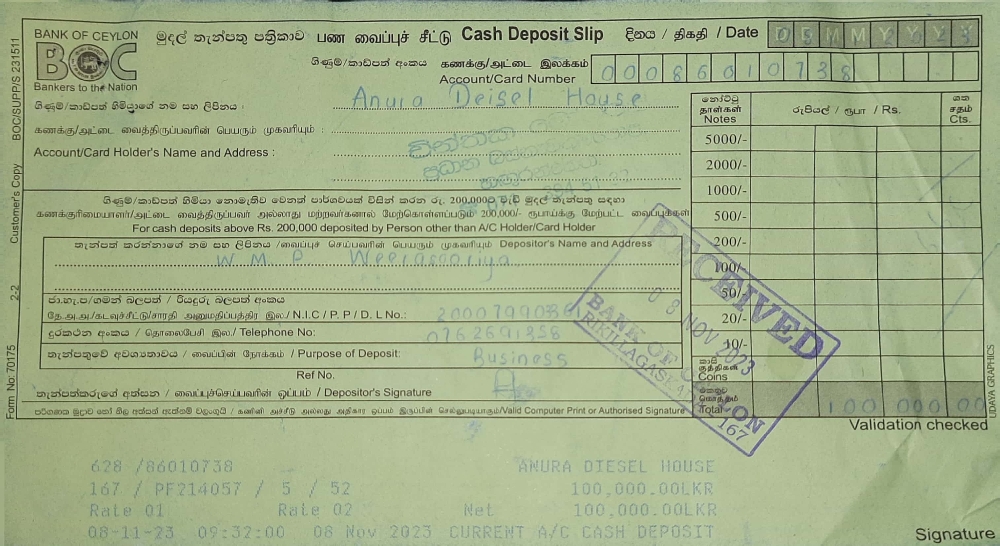 BANK OF CEYLON
BOC
Bankers to the Nation
මුදල් තැන්පතු පත්‍රිකාව பண வைப்புச் சீட்டு Cash Deposit Slip
දිනය / திகதி / Date
ගිණුම්/කාඩ්පත් අංකය கணக்கு/அட்டை இலக்கம்
Account/Card Number
00086010738
ගිණුම්/කාඩ්පත් හිමියාගේ නම සහ ලිපිනය :
Anura Deisel House
கணக்கு/அட்டை வைத்திருப்பவரின் பெயரும் முகவரியும் :
Account/Card Holder's Name and Address :
නෝට්ටු
தாள்கள்
Notes
රුපියල් / ரூபா / Rs.
ශත
சதம்
Cts.
5000/-
2000/-
1000/-
500/-
200/-
100/-
50/-
20/-
10/-
කාසි
குத்திகள்
Coins
එකතුව
மொத்தம்
Total
100 000 00
ගිණුම්/කාඩ්පත් හිමියා නොමැතිව වෙනත් පාර්ශවයක් විසින් කරන රු. 200,000ට වැඩි මුදල් තැන්පතු සඳහා
கணக்குரிமையாளர்/அட்டை வைத்திருப்பவர் அல்லாது மற்றவர்களால் மேற்கொள்ளப்படும் 200,000/- ரூபாய்க்கு மேற்பட்ட வைப்புக்கள்
For cash deposits above Rs. 200,000 deposited by Person other than A/C Holder/Card Holder
තැන්පත් කරන්නාගේ නම සහ ලිපිනය /வைப்புச் செய்பவரின் பெயரும் முகவரியும் Depositor's Name and Address
W.M.P. Weerasooriya
ජා.හැ.ප/ගමන් බලපත් / රියදුරු බලපත් අංකය
தே.அ.அ./கடவுச்சீட்டு/சாரதி அனுமதிப்பத்திர இல./ N.I.C / P.P / D.L No.:
දුරකථන අංකය / தொலைபேசி இல./ Telephone No:
0762691358
තැන්පතුවේ අවශ්‍යතාවය / வைப்பின் நோக்கம் / Purpose of Deposit:
Business
Ref No.
තැන්පත්කරුගේ අත්සන / வைப்புச்செய்பவரின் ஒப்பம் / Depositor's Signature
/Valid Computer Print or Authorised Signature
RECEIVED
08 NOV 2023
BANK OF CEYLON
167
Validation checked
628 /86010738 ANURA DIESEL HOUSE
167 / PF214057 / 5 / 52 100,000.00LKR
Rate 01 Rate 02 Net 100,000.00LKR
08-11-23 09:32:00 08 Nov 2023 CURRENT A/C CASH DEPOSIT
Signature
BOC/SUPP/S 231511
Customer's Copy
2-2
Form No: 70175
UDAYA GRAPHICS